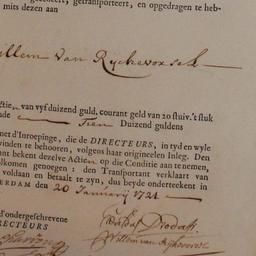 geleert, getransporteert, en opgedragen te heb-
mits dezen aan
Willem Van Ryckevorsel
Actie, van vyf duizend guld, courant geld van 20 stuiv. 't stuk
Tien Duizend guldens
met d'Inroepinge, die de DIRECTEURS, in tyd en wyle
vinden te behooren, volgens haar origineelen Inleg. Den
ant bekent dezelve Actien op die Conditie aan te nemen,
olkomen genoegen : den Transportant verklaart van
voldaan en betaalt te zyn, dus beyde onderteekent in
ERDAM den 20 Januarij 1721
d'ondergeschrevene
RECTEURS
Willem van Rijckevorsel